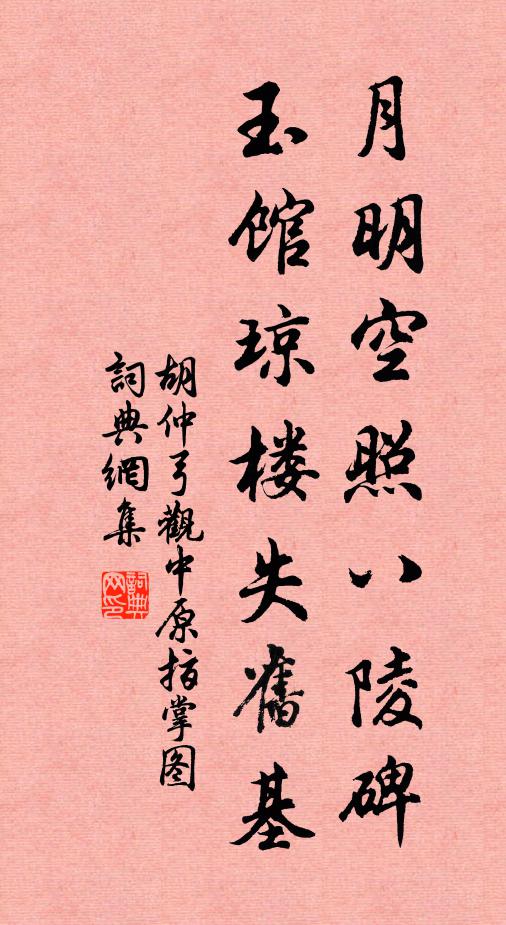 月明空照八陵碑
玉馆琼楼失舊基
胡仲弓觀中原指掌图
詞典網集
詞典网印